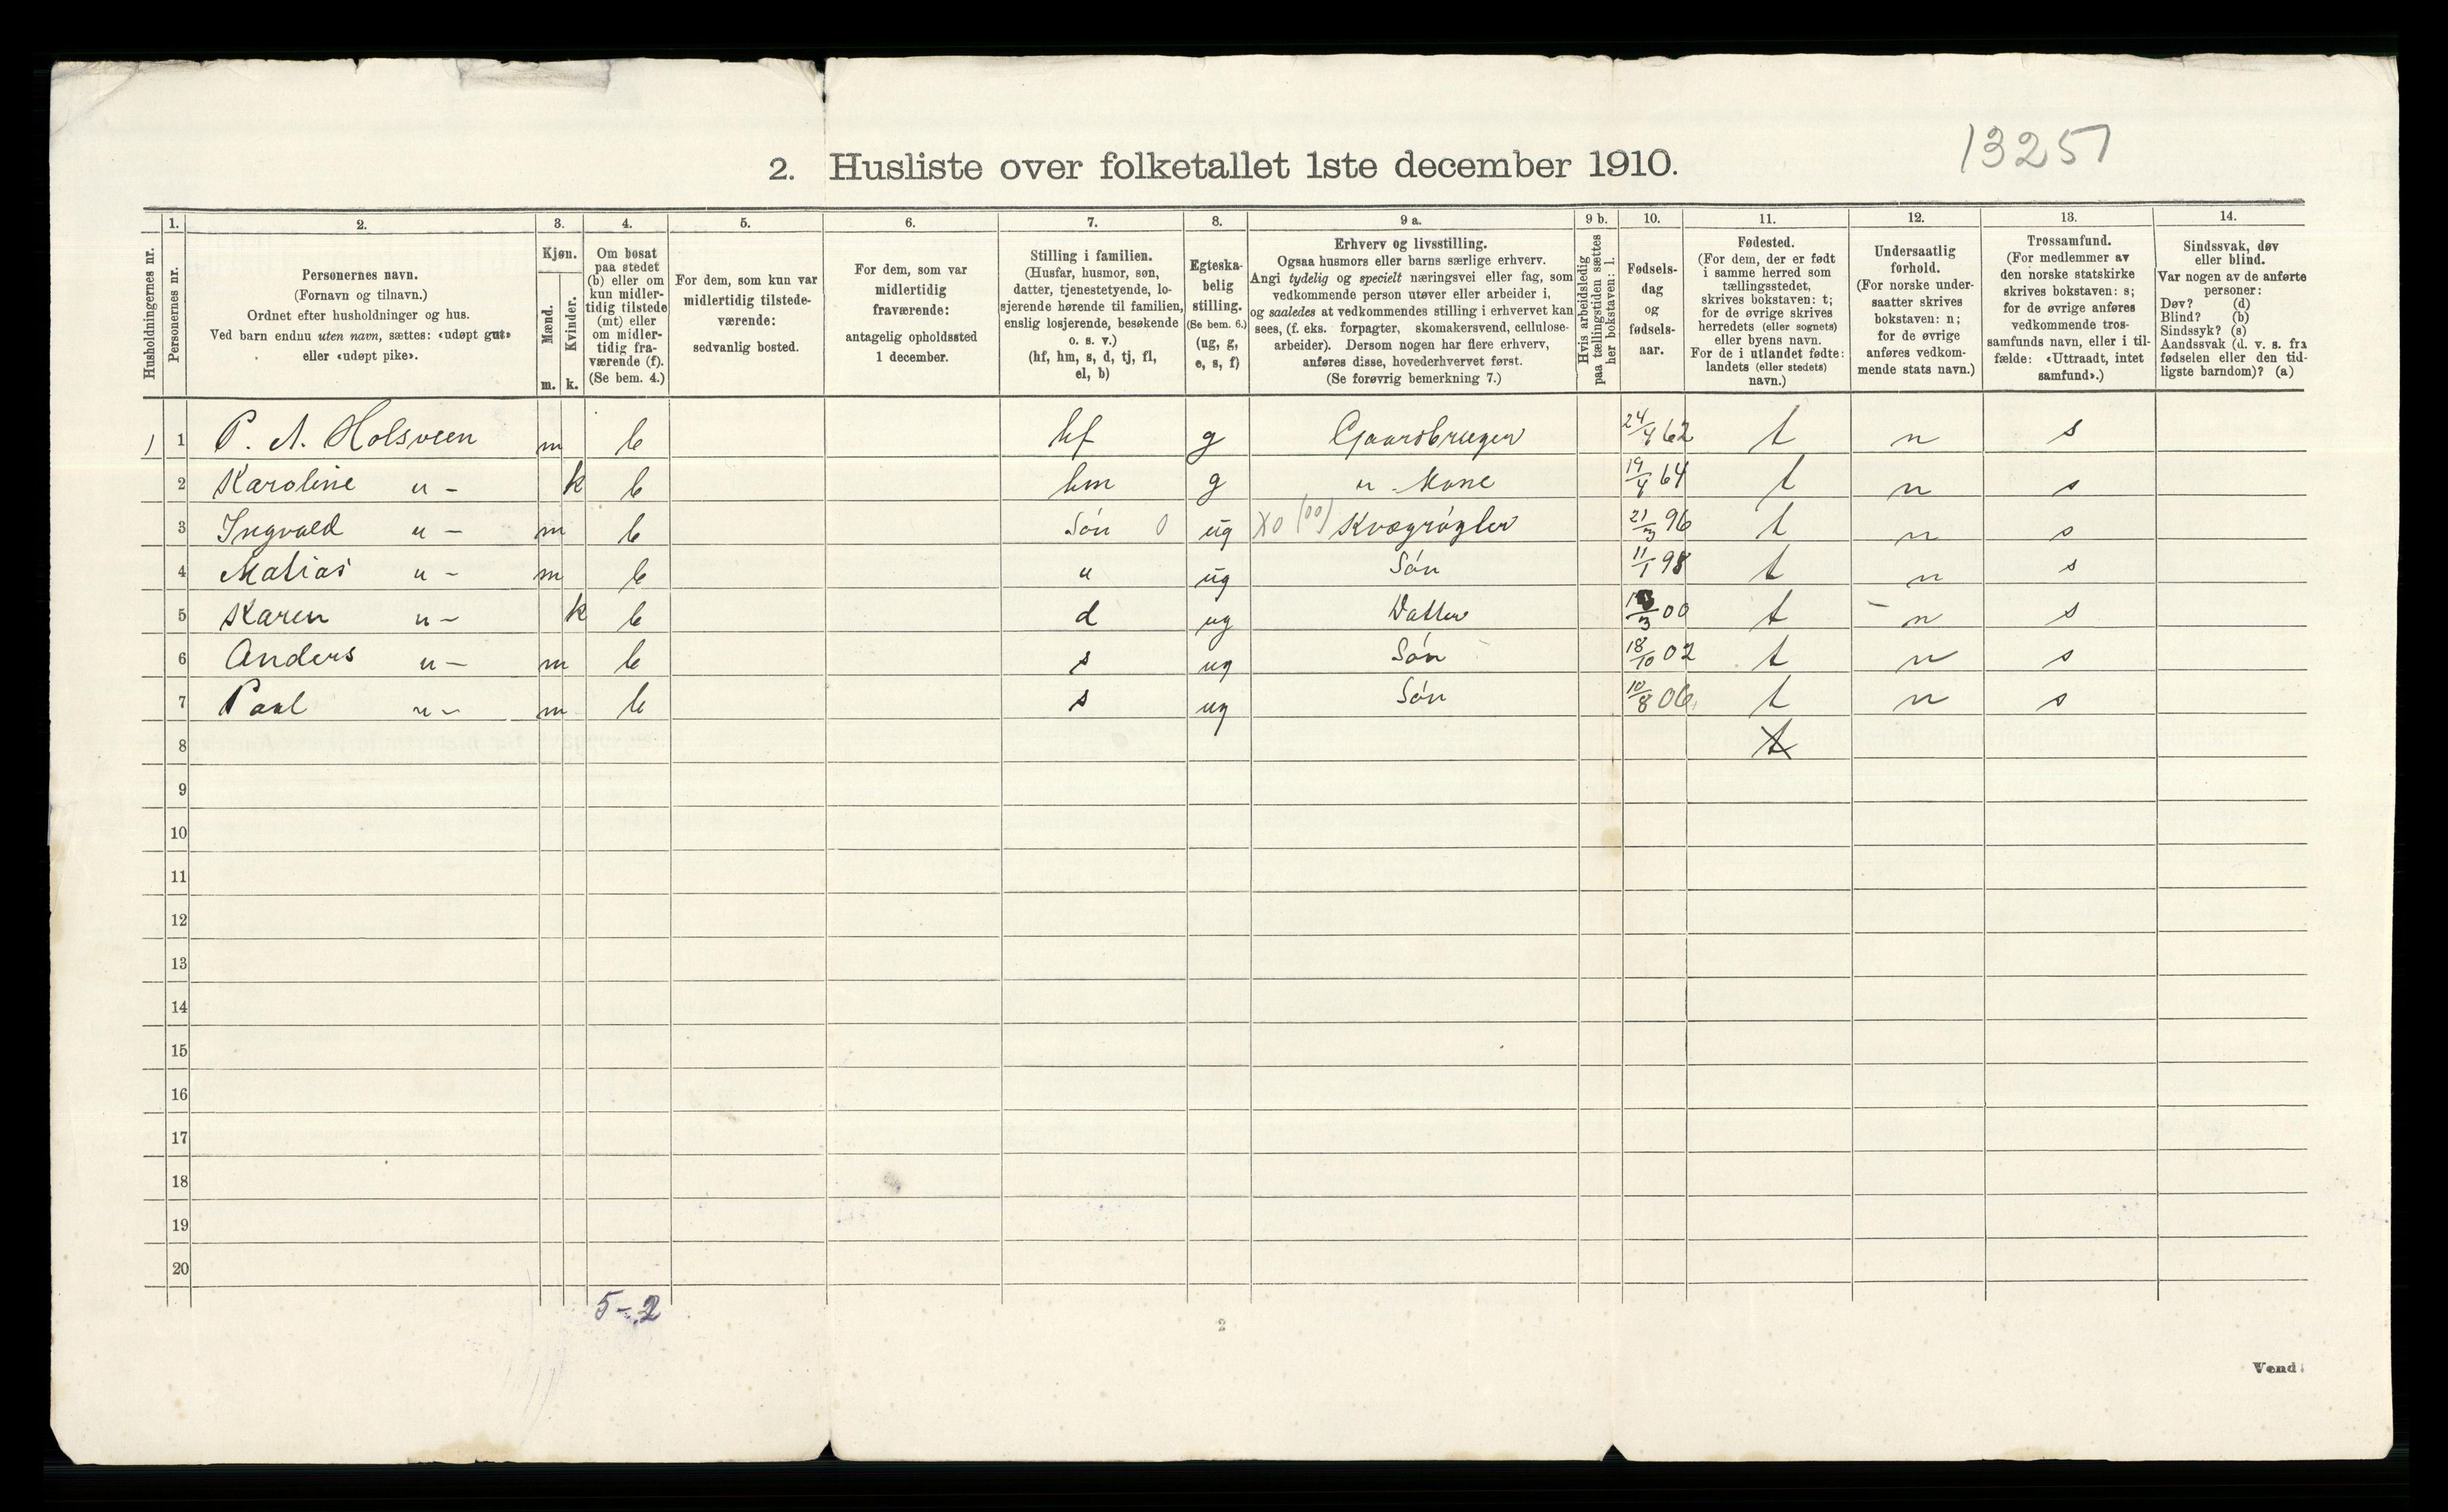 13251
2. Husliste over folketallet 1ste december 1910.
1. 2. 3. 4. 5. 6. 7. 8. 9 a. 9 b. 10. 11. 12. 13. 14.
Husholdningernes nr.
Personernes nr.
Personernes navn.
(Fornavn og tilnavn.)
Ordnet efter husholdninger og hus.
Ved barn endnu uten navn, sættes: «udøpt gut»
eller «udøpt pike».
Kjøn.
Mænd.
Kvinder.
m. k.
Om bosat
paa stedet
(b) eller om
kun midler-
tidig tilstede
(mt) eller
om midler-
tidig fra-
værende (f).
(Se bem. 4.)
For dem, som kun var
midlertidig tilstede-
værende:
sedvanlig bosted.
For dem, som var
midlertidig
fraværende:
antagelig opholdssted
1 december.
Stilling i familien.
(Husfar, husmor, søn,
datter, tjenestetyende, lo-
sjerende hørende til familien,
enslig losjerende, besøkende
o. s. v.)
(hf, hm, s, d, tj, fl,
el, b)
Egteska-
belig
stilling.
(Se bem. 6.)
(ug, g,
e, s, f)
Erhverv og livsstilling.
Ogsaa husmors eller barns særlige erhverv.
Angi tydelig og specielt næringsvei eller fag, som
vedkommende person utøver eller arbeider i,
og saaledes at vedkommendes stilling i erhvervet kan
sees, (f. eks. forpagter, skomakersvend, cellulose-
arbeider). Dersom nogen har flere erhverv,
anføres disse, hovederhvervet først.
(Se forøvrig bemerkning 7.)
Hvis arbeidsledig
paa tællingstiden sættes
her bokstaven: l.
Fødsels-
dag
og
fødsels-
aar.
Fødested.
(For dem, der er født
i samme herred som
tællingsstedet,
skrives bokstaven: t;
for de øvrige skrives
herredets (eller sognets)
eller byens navn.
For de i utlandet fødte:
landets (eller stedets)
navn.)
Undersaatlig
forhold.
(For norske under-
saatter skrives
bokstaven: n;
for de øvrige
anføres vedkom-
mende stats navn.)
Trossamfund.
(For medlemmer av
den norske statskirke
skrives bokstaven: s;
for de øvrige anføres
vedkommende tros-
samfunds navn, eller i til-
fælde: «Uttraadt, intet
samfund».)
Sindssvak, døv
eller blind.
Var nogen av de anførte
personer:
Døv? (d)
Blind? (b)
Sindssyk? (s)
Aandssvak (d. v. s. fra
fødselen eller den tid-
ligste barndom)? (a)
1 1 P. A. Holsveen m b hf g Gaardbruger 24/4 62 t n s
2 Karoline u - k b hm g u Kone 19/4 64 t n s
3 Ingvald u - m b Søn 0 ug X0 (00) Kvægrøgter 21/3 96 t n s
4 Matias u - m b u ug Søn 11/1 98 t n s
5 Karen u - k b d ug Datter /3 00 t - n s
6 Anders u - m b s ug Søn 18/10 02 t n s
7 Paul u - m b s ug Søn 10/8 06 t n s
8 t
9
10
11
12
13
14
15
16
17
18
19
20
5-2
2
Vend!